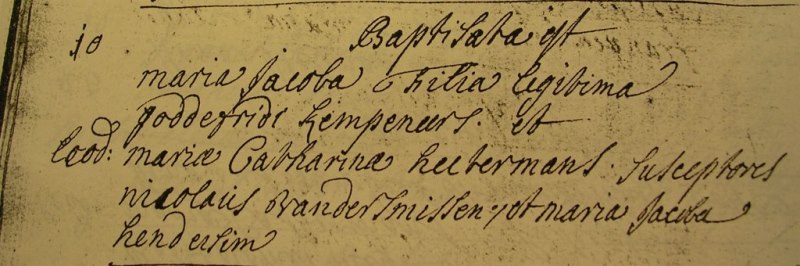 10 Baptisata est
maria Jacoba Filia legitima
Joddefridi Kempeneers. et
eod: mariæ Catharinæ hectermans. Susceptores
nicolaus Vandersmissen, et maria Jacoba